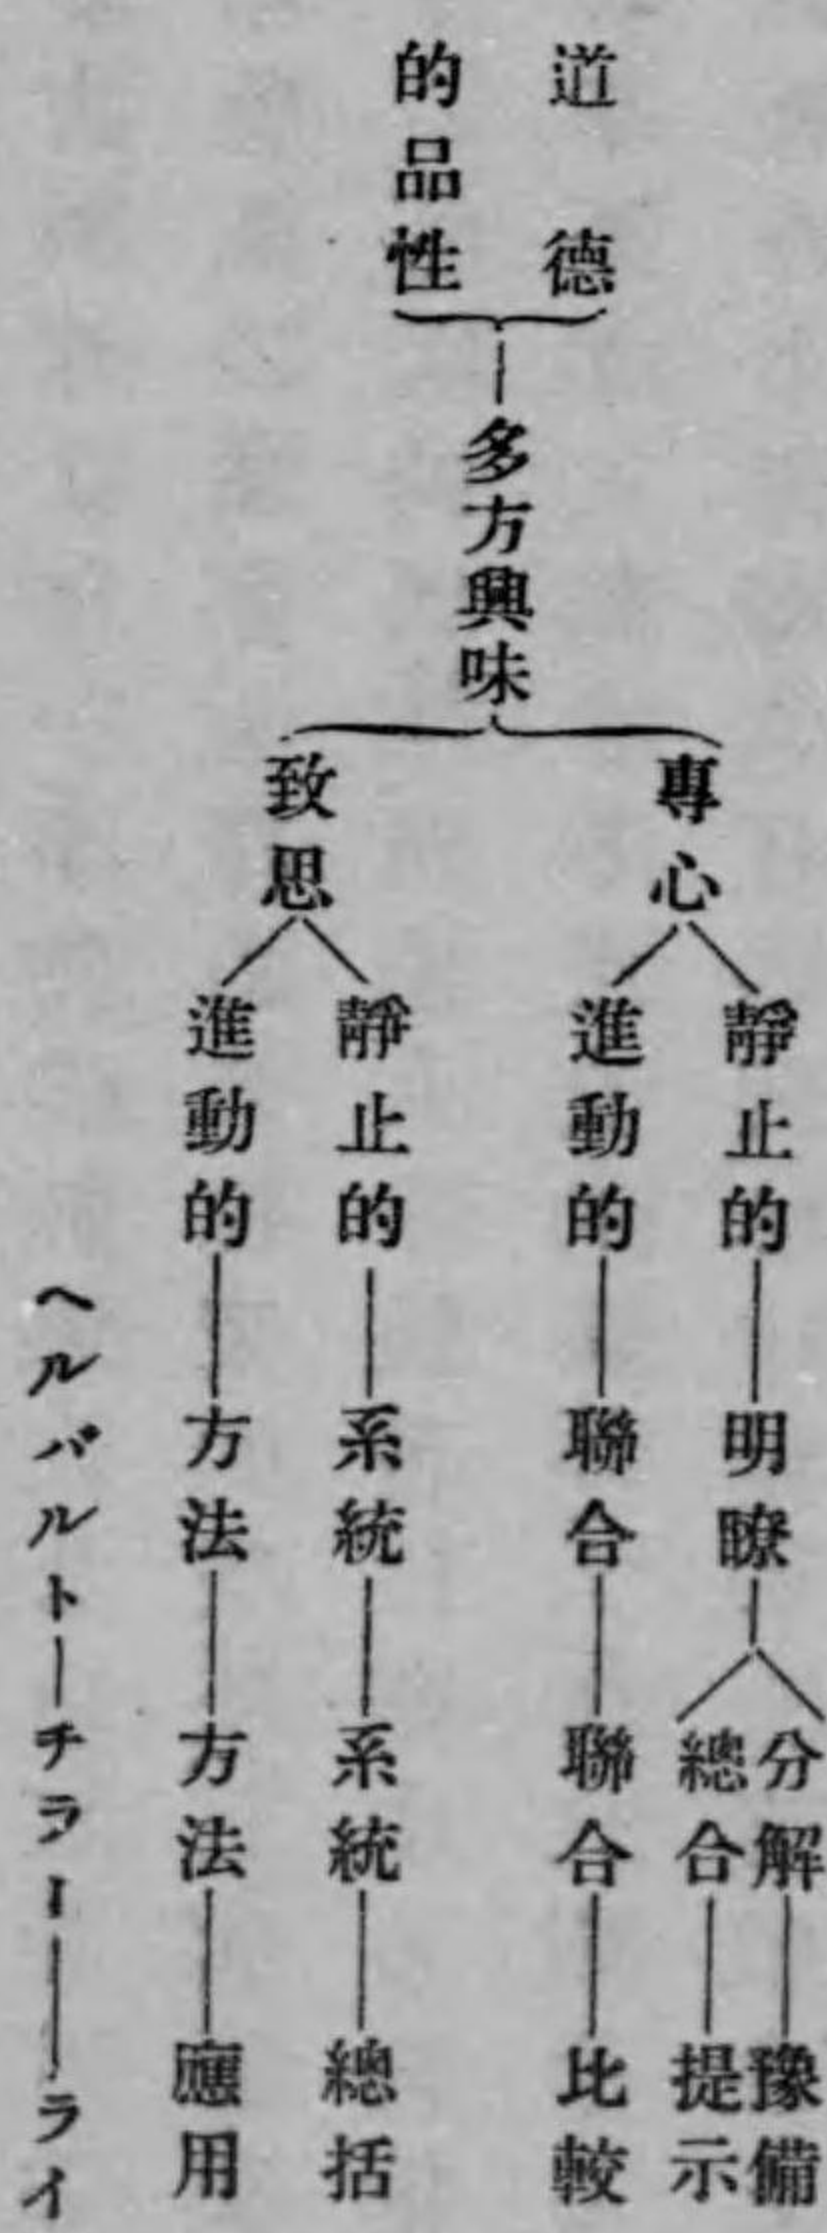 道德
的品性
多方興味
專心
靜止的
明瞭
分解
豫備
總合
提示
進動的
聯合
聯合
比較
致思
靜止的
系統
系統
總括
進動的
方法
方法
應用
ヘルバルト―チラー―ライ